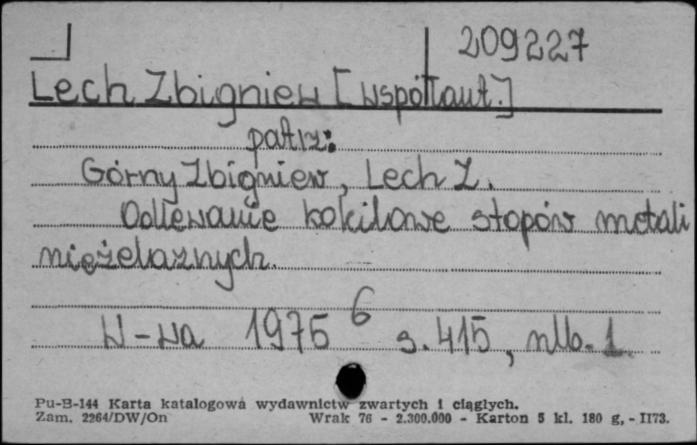 209227
Lech Zbigniew [współaut.]
patrz:
Górny Zbigniew, Lech Z.
Odlewanie kokilowe stopów metali
nieżelaznych.
W-wa 1975 6 s. 415, nlb. 1
Pu-B-144 Karta katalogowa wydawnictw zwartych i ciągłych.
Zam. 2264/DW/On Wrak 76 - 2.300.000 - Karton 5 kl. 180 g, - II73.